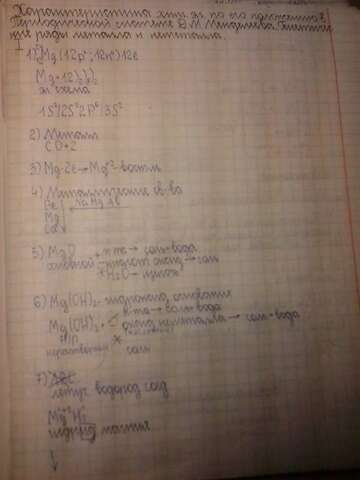 Характеристика хим. эл. по его положению в
Периодической системе Д.И. Менделеева. Генетичес
кие ряды металла и неметалла.
1) Mg (12p⁺; 12n⁰) 12e
Mg +12)))
эл схема
1S²/2S²2P⁶/3S²
2) Металл
CO+2
3) Mg-2e→Mg⁺² восст.
4) Металлические св-ва
Be Na Mg Al
Mg
Ca
5) MgO + к-та → соль+вода
основной кислот оксид → соль
+H₂O
6) Mg(OH)₂ - гидроксид основание
к-та → соль+вода
Mg(OH)₂ + оксид неметалла → соль+вода
нерастворим соль
7) летуч водород соед
Mg⁺²H₂
гидрид магния